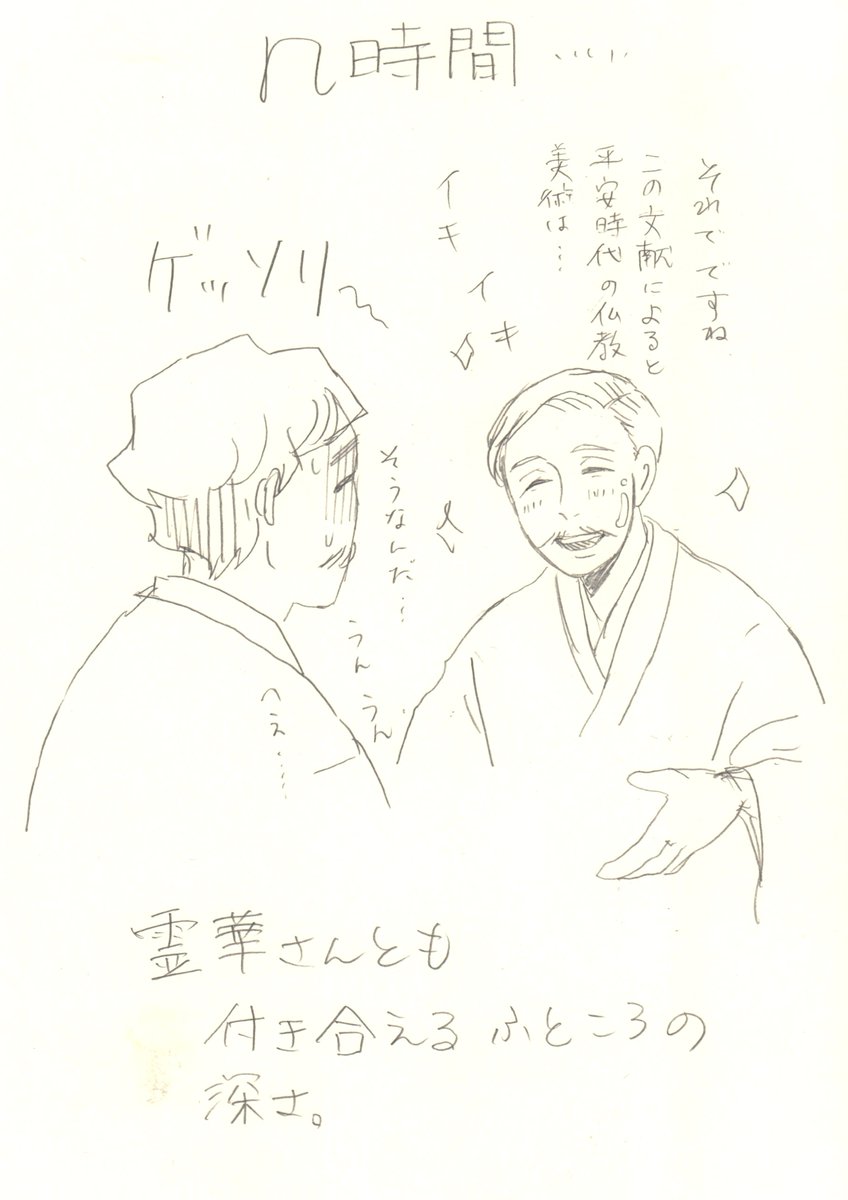 n時間……
それでですね
この文献によると
平安時代の仏教
美術は…
イキ
イキ
ゲッソリ
そうなんだ…
うんうん
へえ……
霊華さんとも
付き合えるふところの
深さ。